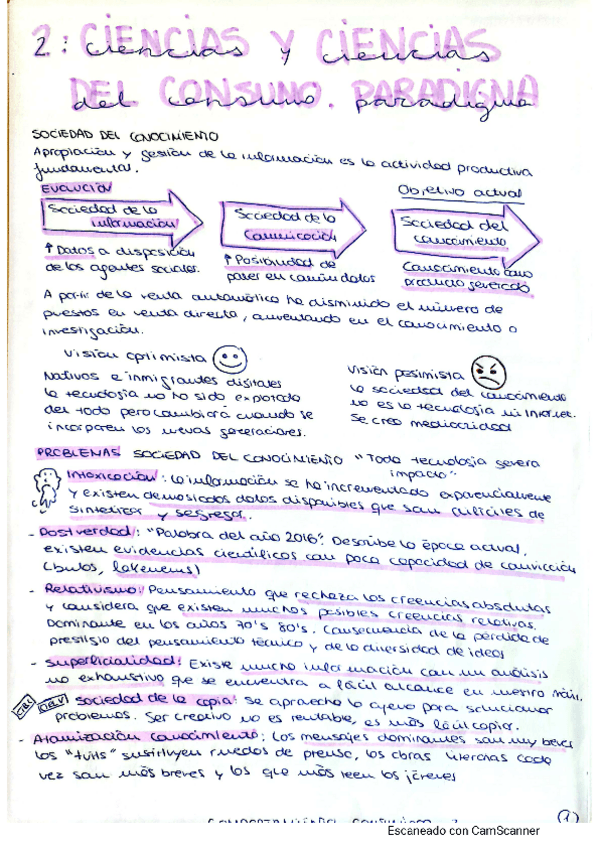 2: CIENCIAS Y CIENCIAS
DEL CONSUMO. PARADIGMA
SOCIEDAD DEL CONOCIMIENTO
Apropiación y gestión de la información es la actividad productiva
fundamental.
EVOLUCIÓN
Objetivo actual
Sociedad de la
información
Sociedad de la
Comunicación
Sociedad del
conocimiento
↑ Datos a disposición
de los agentes sociales.
↑ Posibilidad de
poner en común datos
Conocimiento como
producto generado
A partir de la venta automática ha disminuido el número de
puestos en venta directa, aumentando en el conocimiento o
investigación.
Visión optimista
Nativos e inmigrantes digitales
la tecnología no ha sido explotada
del todo pero cambiará cuando se
incorporen las nuevas generaciones.
Visión pesimista
la sociedad del conocimiento
no es la tecnología ni Internet.
Se crea mediocridad
PROBLEMAS SOCIEDAD DEL CONOCIMIENTO "Toda tecnología genera
impacto"
Intoxicación: la información se ha incrementado exponencialmente
y existen demasiados datos disponibles que son difíciles de
sintetizar y segregar.
- Postverdad: "Palabra del año 2016". Describe la época actual,
existen evidencias científicas con poca capacidad de convicción
(bulos, fakenews)
- Relativismo: Pensamiento que rechaza las creencias absolutas
y considera que existen muchas posibles creencias relativas.
Dominante en los años 70's 80's. Consecuencia de la pérdida de
prestigio del pensamiento técnico y de la diversidad de ideas
- Superficialidad: Existe mucha información con un análisis
no exhaustivo que se encuentra a fácil alcance en nuestro
CTRL C CTRL V Sociedad de la copia: Se aprovecha lo ajeno para solucionar
problemas. Ser creativo no es rentable, es más fácil copiar.
- Atomización conocimiento: Los mensajes dominantes son muy breves
los "tuits" sustituyen ruedas de prensa, las obras literarias cada
vez son más breves y los que más leen los jóvenes
1
Escaneado con CamScanner